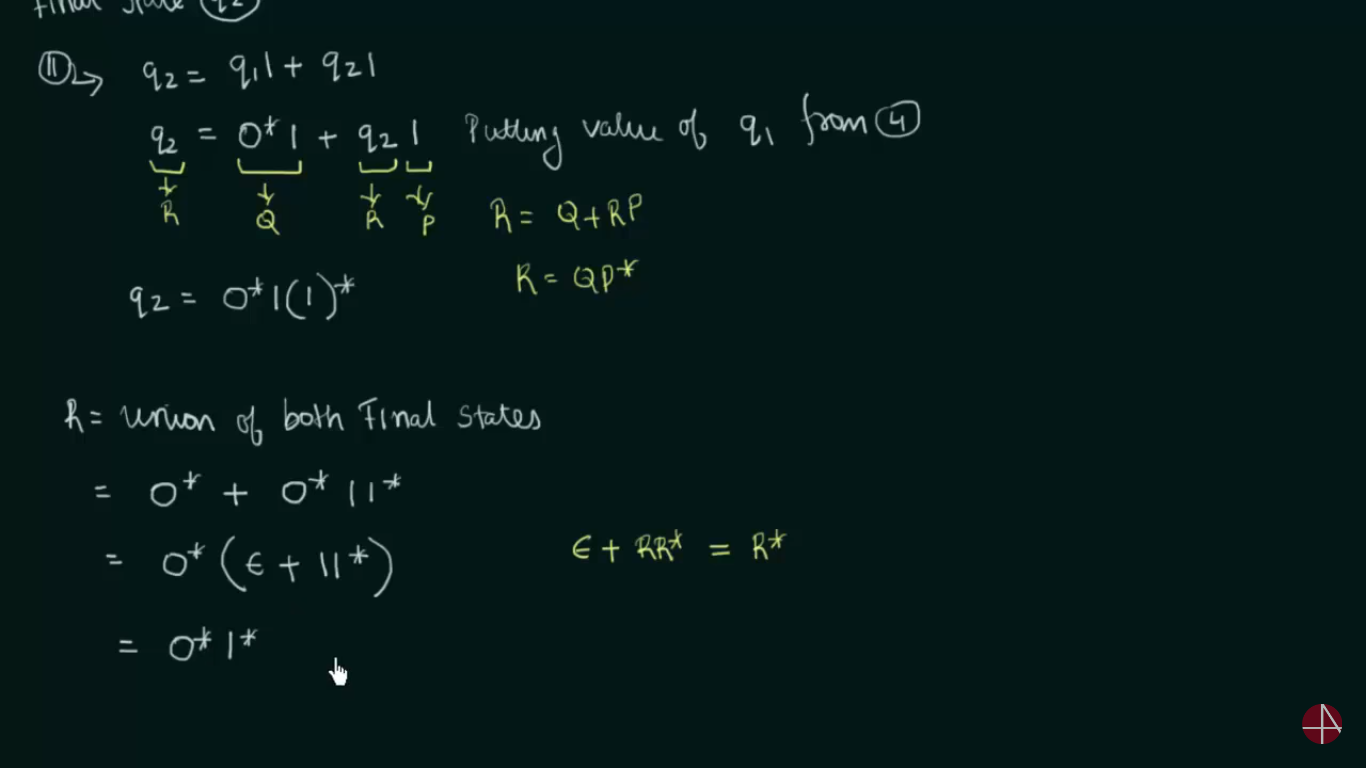 Final State q2
(11) → q2 = q1 1 + q2 1
q2 = 0* 1 + q2 1 Putting value of q1 from (4)
R Q R P R = Q + RP
q2 = 0* 1 (1)* R = QP*
R = union of both Final States
= 0* + 0* 11*
= 0* (ϵ + 11*) ϵ + RR* = R*
= 0* 1*